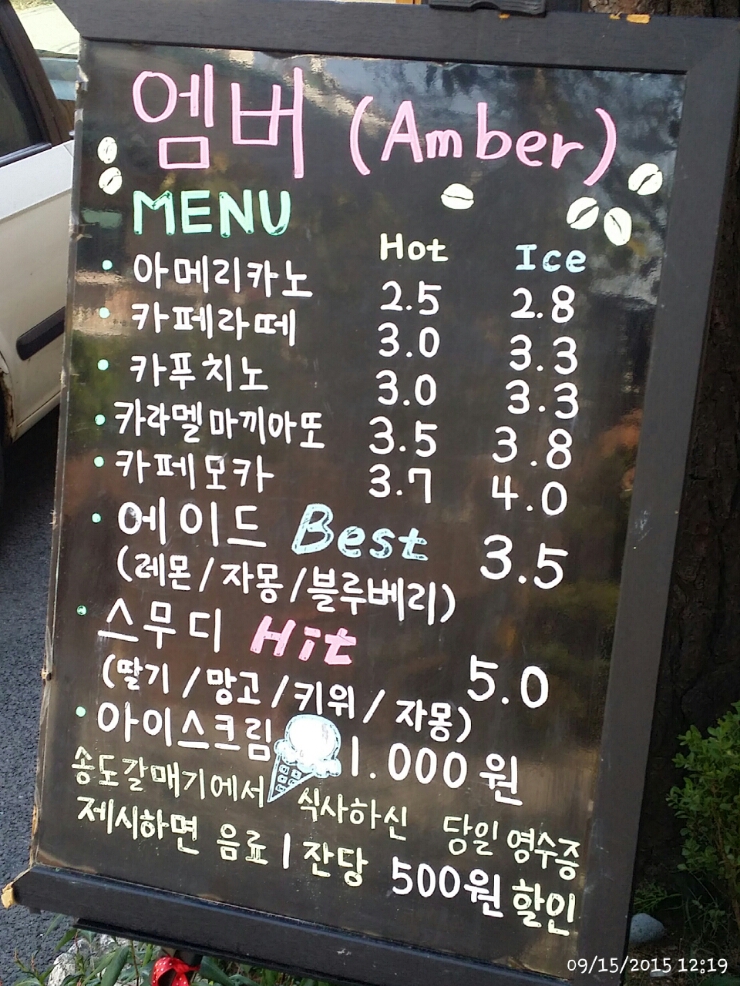 엠버 (Amber)
MENU
Hot Ice
• 아메리카노 2.5 2.8
• 카페라떼 3.0 3.3
• 카푸치노 3.0 3.3
• 카라멜마끼아또 3.5 3.8
• 카페모카 3.7 4.0
• 에이드 Best 3.5
(레몬/자몽/블루베리)
• 스무디 Hit 5.0
(딸기/망고/키위/자몽)
• 아이스크림 1.000원
송도갈매기에서 식사하신 당일 영수증
제시하면 음료 1잔당 500원 할인
09/15/2015 12:19